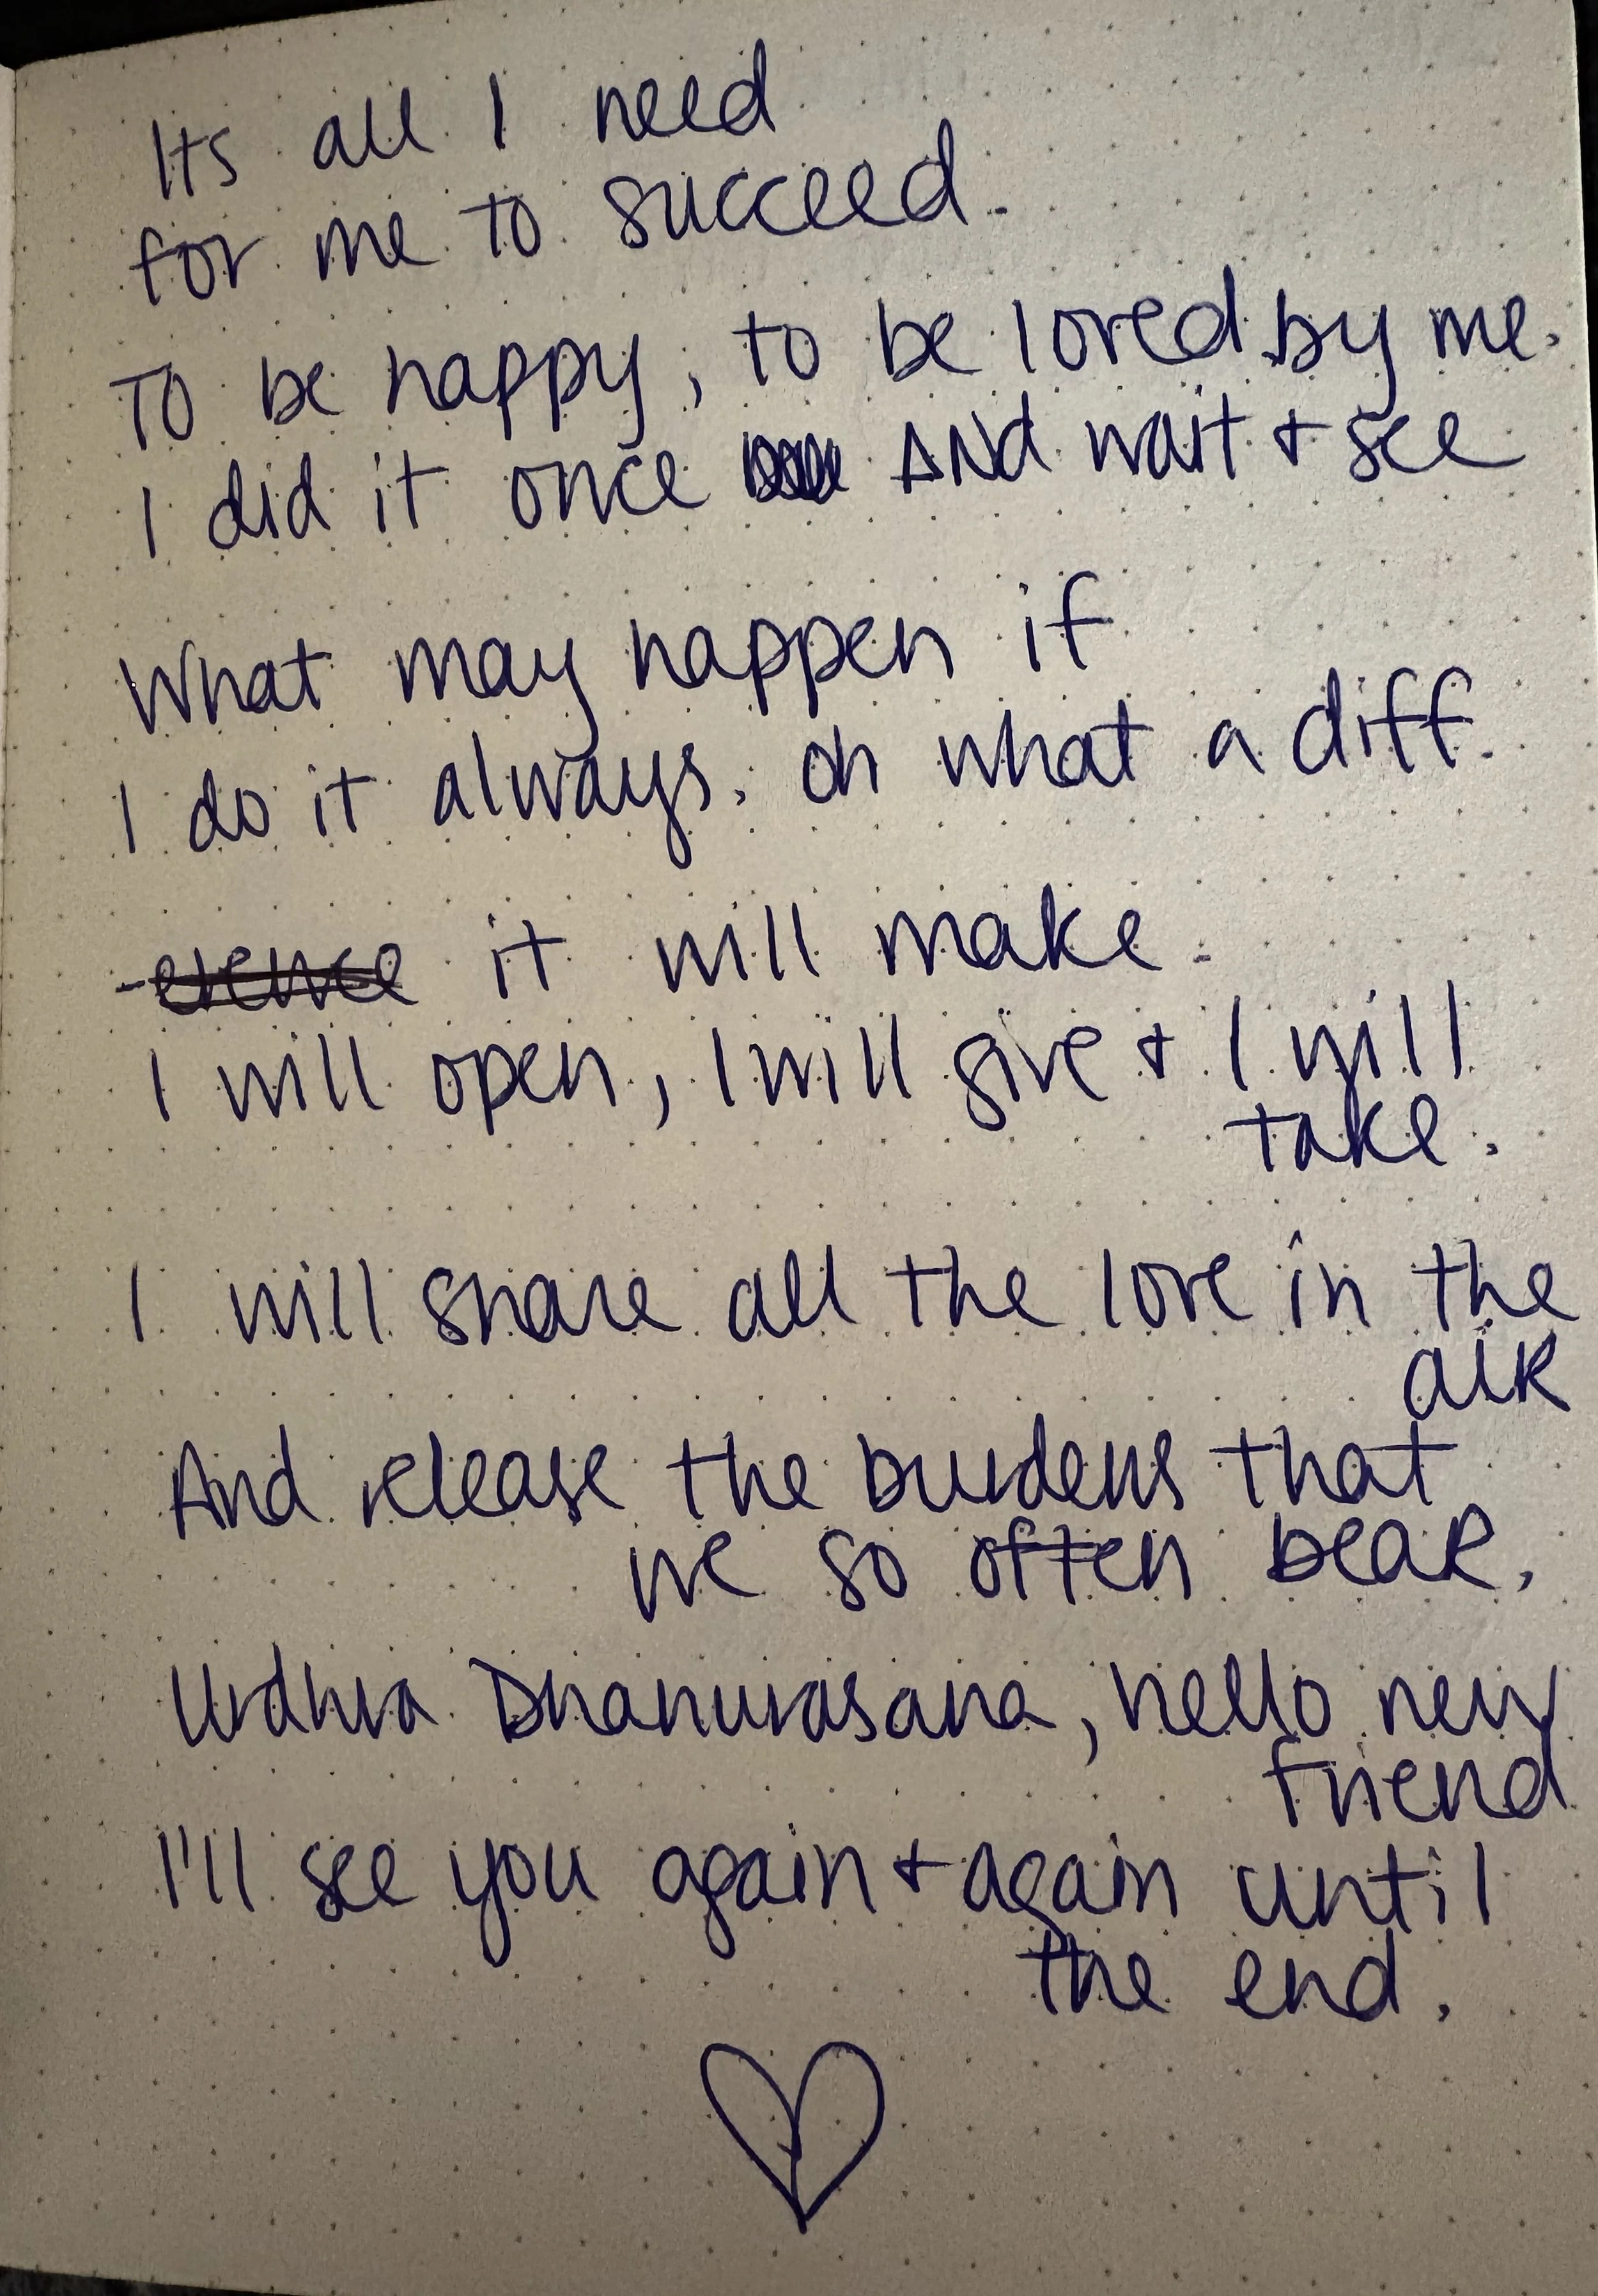 Its all I need
for me to succeed.
To be happy, to be loved by me.
I did it once And wait + see
What may happen if
I do it always. oh what a diff.
-erence it will make.
I will open, I will give + I will
take.
I will share all the love in the
air
And release the burdens that
we so often bear.
Urdhva Dhanurasana, hello new
friend
I'll see you again + again until
the end.